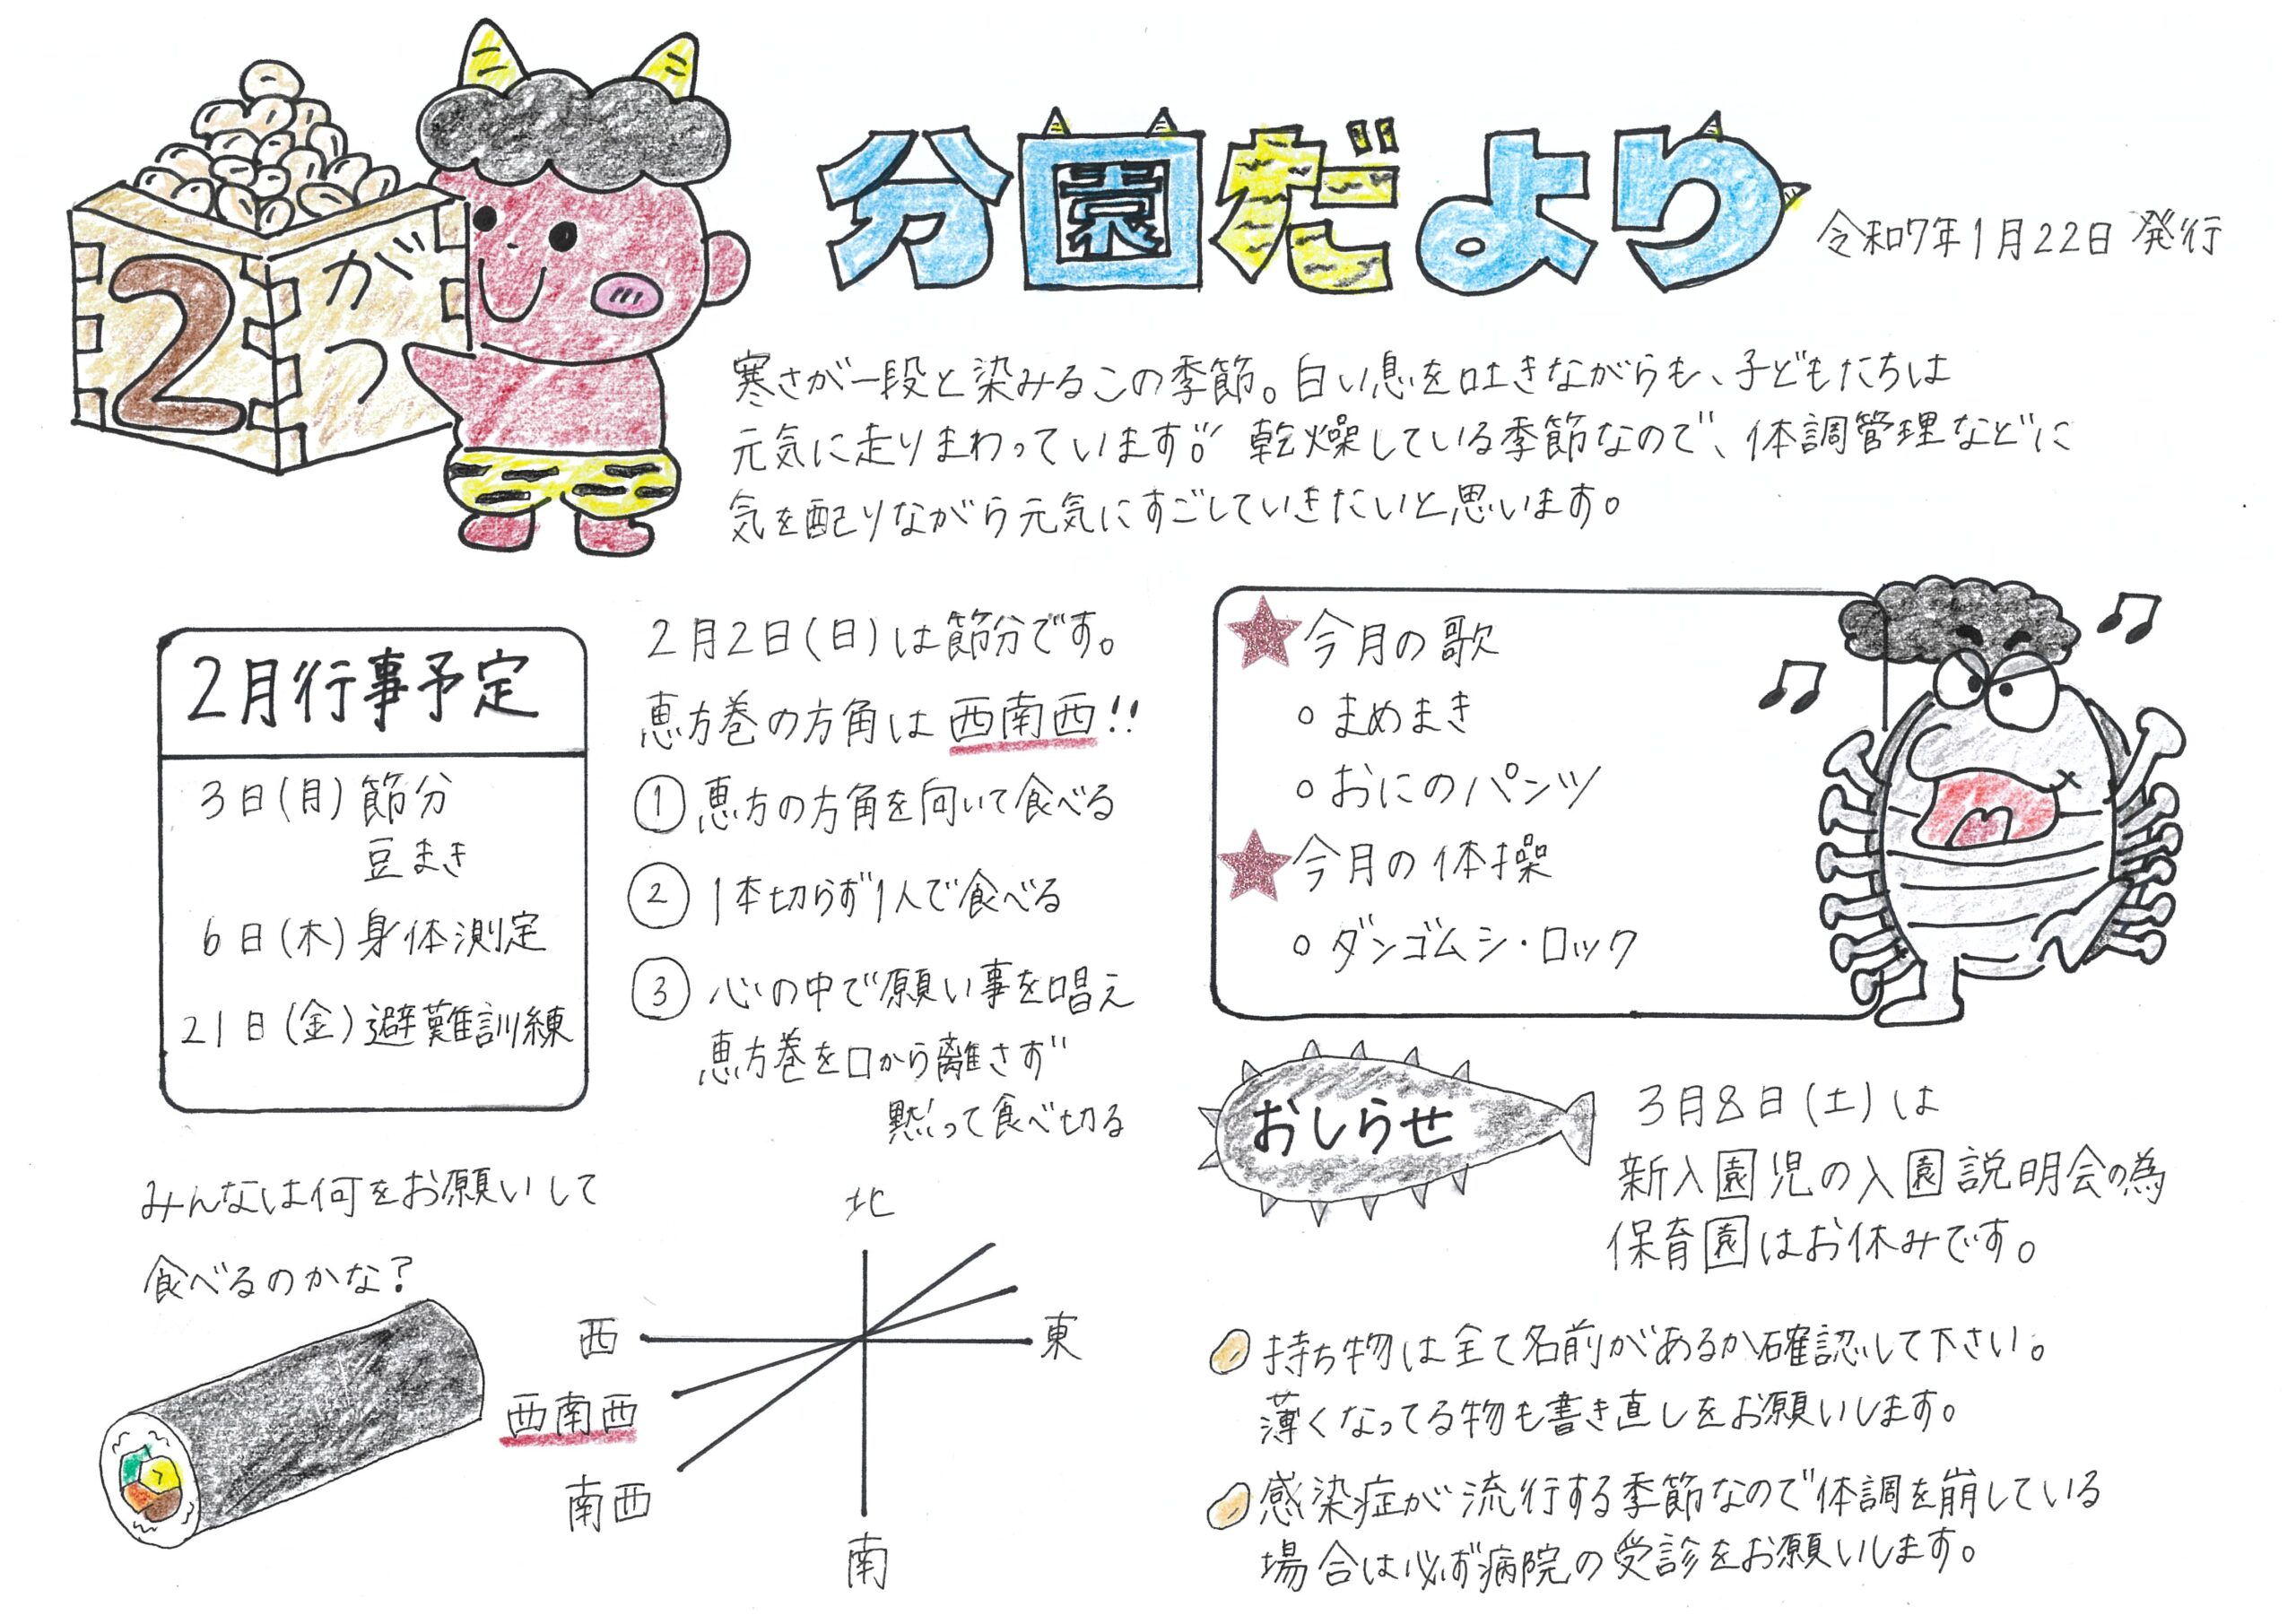 2
がつ
分園だより
令和7年1月22日 発行
寒さが一段と染みるこの季節。白い息を吐きながらも、子どもたちは
元気に走りまわっています。乾燥している季節なので、体調管理などに
気を配りながら元気にすごしていきたいと思います。
2月行事予定
3日(月)節分
豆まき
6日(木)身体測定
21日(金)避難訓練
2月2日(日)は節分です。
恵方巻の方角は西南西!!
① 恵方の方角を向いて食べる
② 1本切らず1人で食べる
③ 心の中で願い事を唱え
恵方巻を口から離さず
黙って食べ切る
みんなは何をお願いして
食べるのかな?
北
西
東
西南西
南西
南
★今月の歌
○まめまき
○おにのパンツ
★今月の体操
○ダンゴムシ・ロック
おしらせ
3月8日(土)は
新入園児の入園説明会の為
保育園はお休みです。
持ち物は全て名前があるか確認して下さい。
薄くなってる物も書き直しをお願いします。
感染症が流行する季節なので体調を崩している
場合は必ず病院の受診をお願いします。